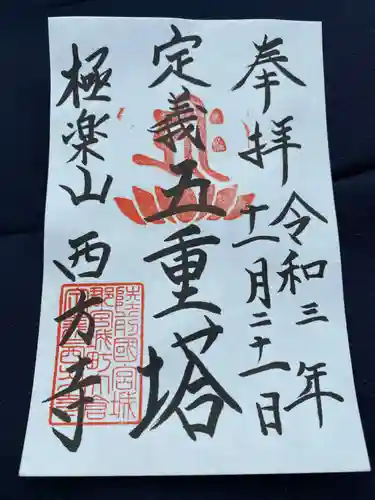 奉拝
令和三年
十一月二十一日
定義五重塔
極楽山西方寺